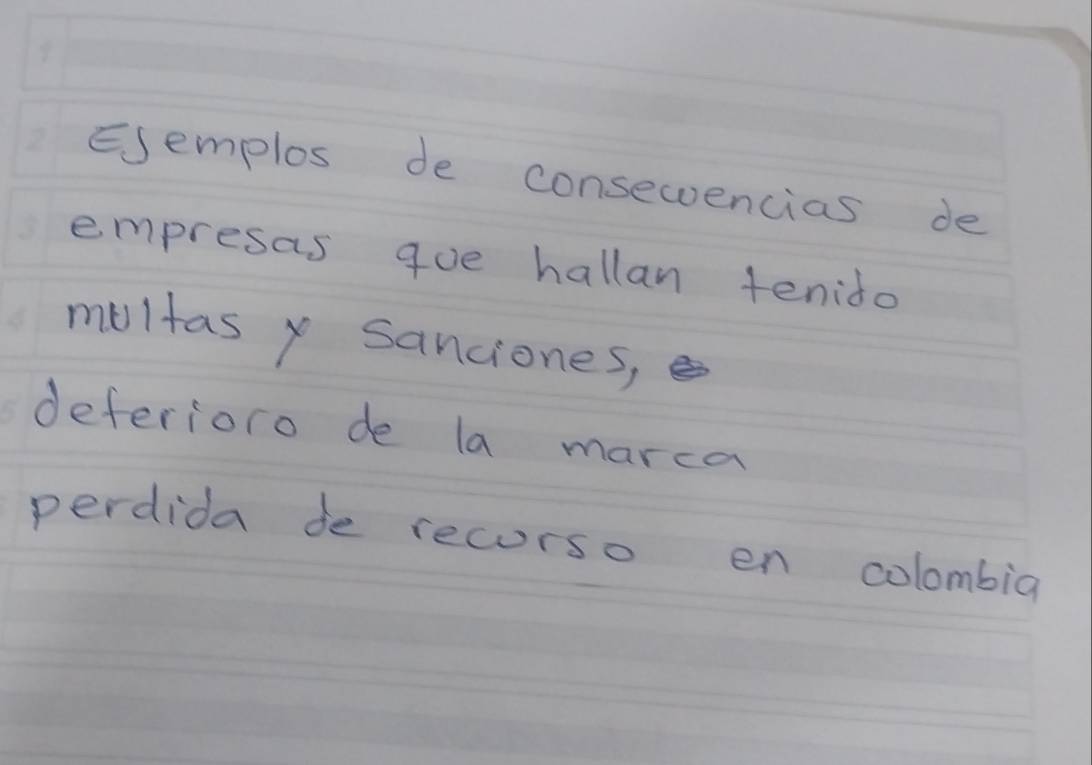 Ejemplos de consecuencias de
empresas que hallan tenido
multas y sanciones,
deterioro de la marca
perdida de recurso en colombia